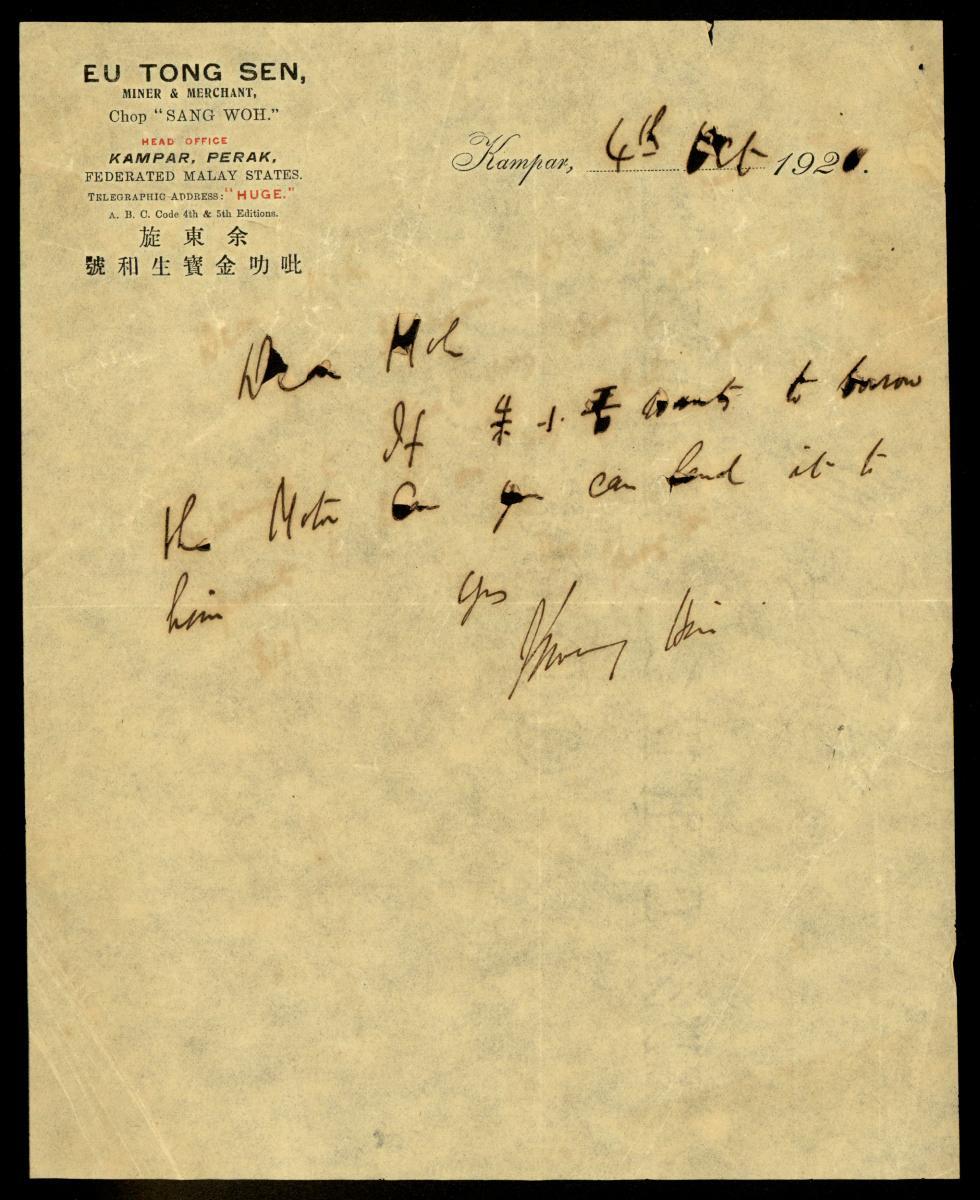 EU TONG SEN,
MINER & MERCHANT,
Chop "SANG WOH."
HEAD OFFICE
KAMPAR, PERAK,
FEDERATED MALAY STATES.
TELEGRAPHIC ADDRESS: "HUGE."
A. B. C. Code 4th & 5th Editions.
旋東余
號和生寶金叻吡
Kampar, 4th Oct 1920.
Dear Hoh
If 朱 wants to borrow
the Motor Car you can lend it to
him
Yrs
Hin